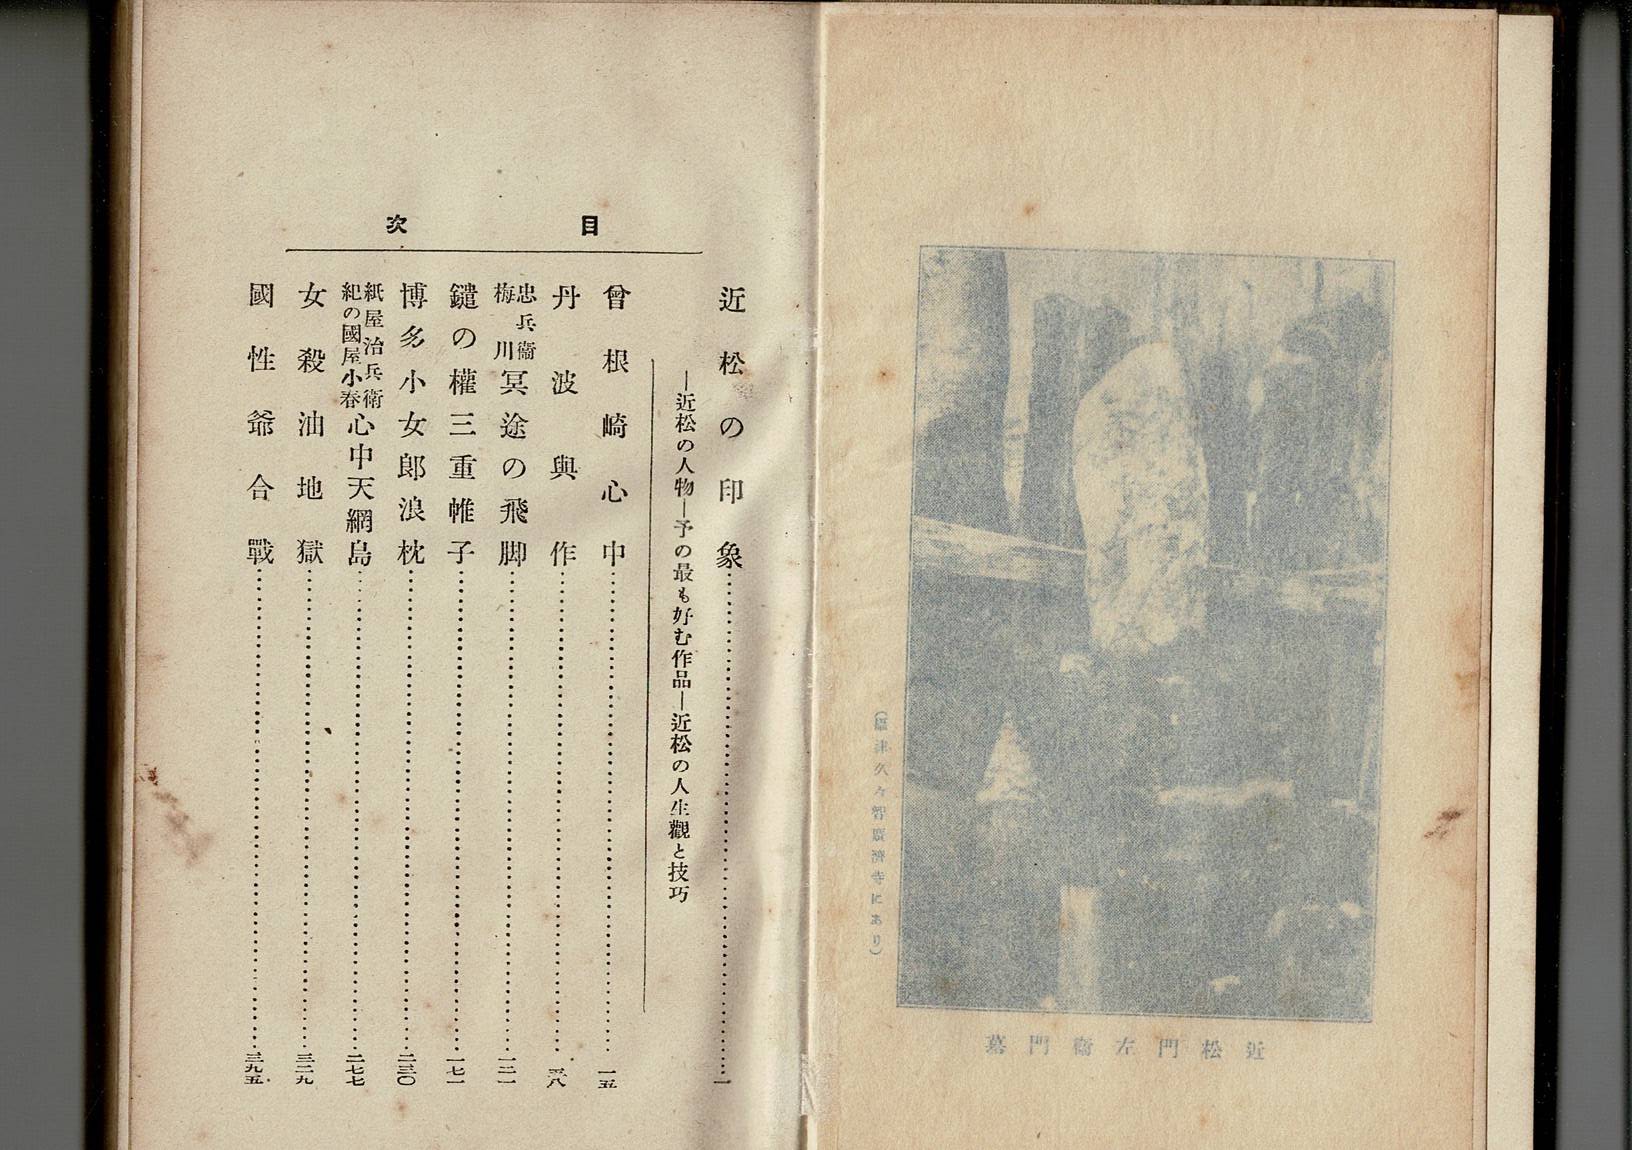 近松門左衞門墓
久々智廣濟寺にあり）
目次
近松の印象……一
―近松の人物―予の最も好む作品―近松の人生觀と技巧
曾根崎心中……一五
丹波與作……五八
忠兵衞
梅川
冥途の飛脚……一二一
鑓の權三重帷子……一七一
博多小女郎浪枕……二三〇
紙屋治兵衞
紀の國屋小春
心中天網島……二七七
女殺油地獄……三二九
國性爺合戰……三九五